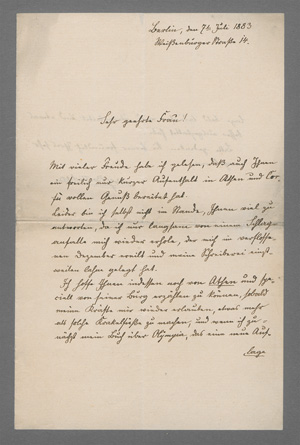 Berlin, den 7t. Juli 1883
Weißenburger Straße 14.
Sehr geehrte Frau!
Mit vieler Freude habe ich gelesen, daß auch Ihnen
ein freilich nur kurzer Aufenthalt in Athen und Cor-
fu vollen Genuß bereitet hat.
Leider bin ich selbst nicht im Stande, Ihnen viel zu
antworten, da ich nur langsam von einem Schlag-
anfalle mich wieder erhole, der mich im verflosse-
nen Dezember ereilt und meine Schreiberei einst-
weilen lahm gelegt hat.
Ich hoffe Ihnen indessen noch von Athen und spe-
ciell von seiner Burg erzählen zu können, sobald
meine Kräfte mir wieder erlauben, etwas mehr
als solche Krakelfüße zu machen; und wenn ich zu-
nächst mein Buch über Olympia, das eine neue Auf-
lage